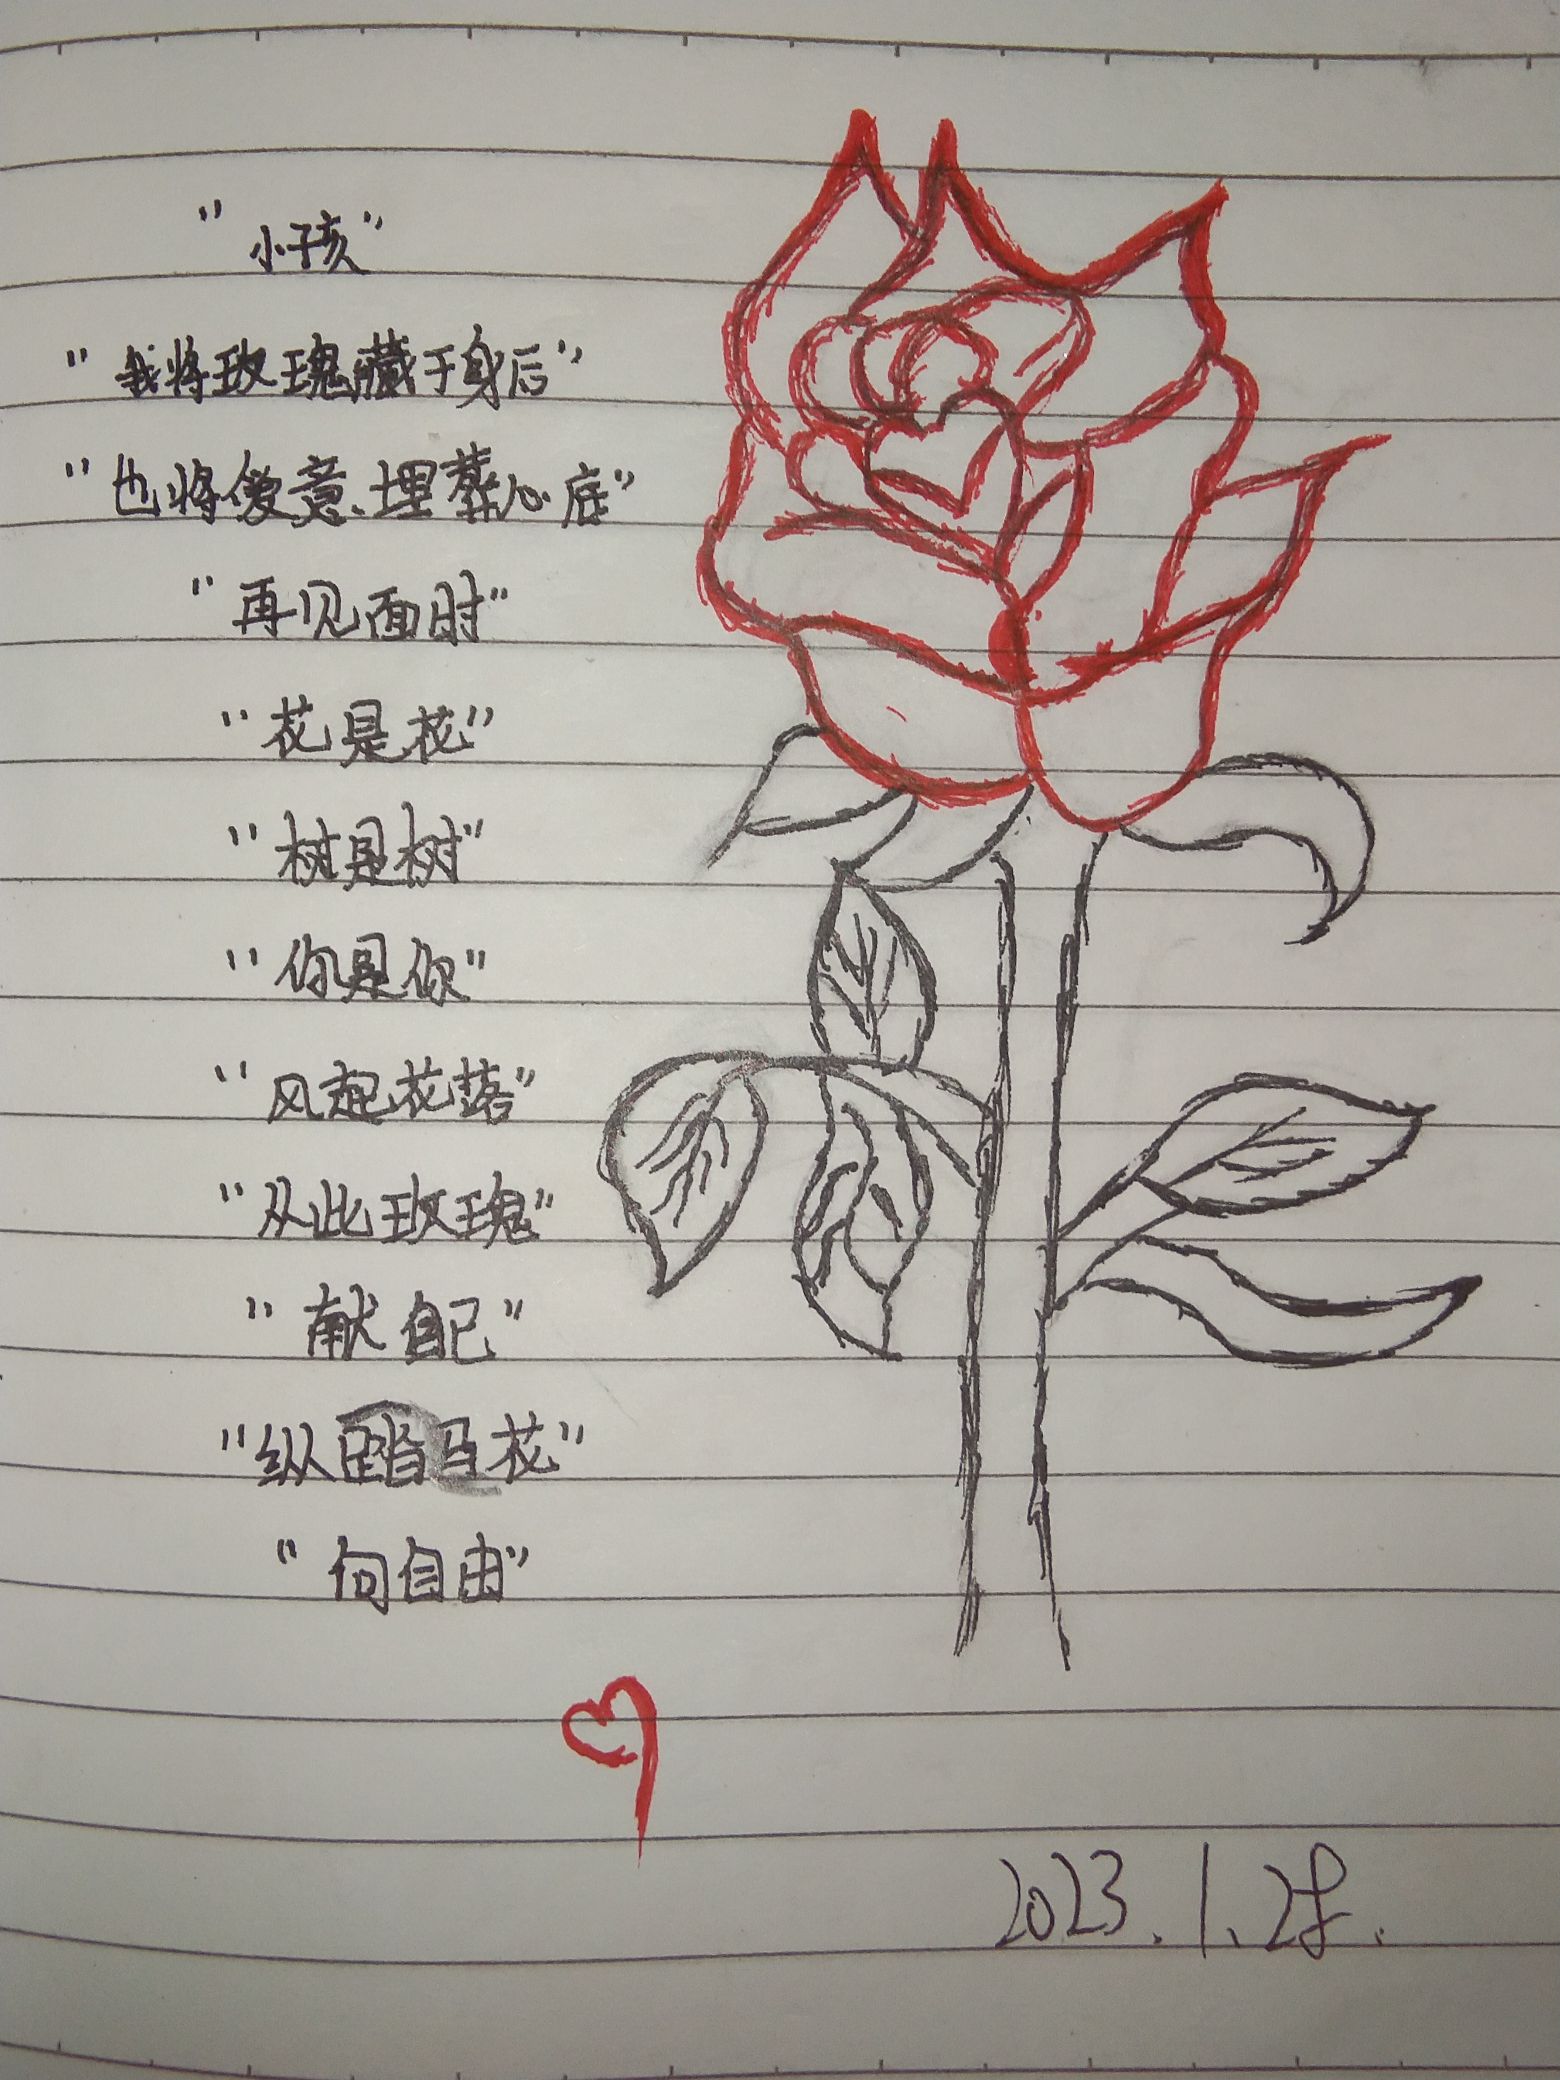 "小孩"
"我将玫瑰藏于身后"
"也将爱意、埋葬心底"
"再见面时"
"花是花"
"树是树"
"你是你"
"风起花落"
"从此玫瑰"
"献自己"
"纵踏马花"
"向自由"
2023.1.28.